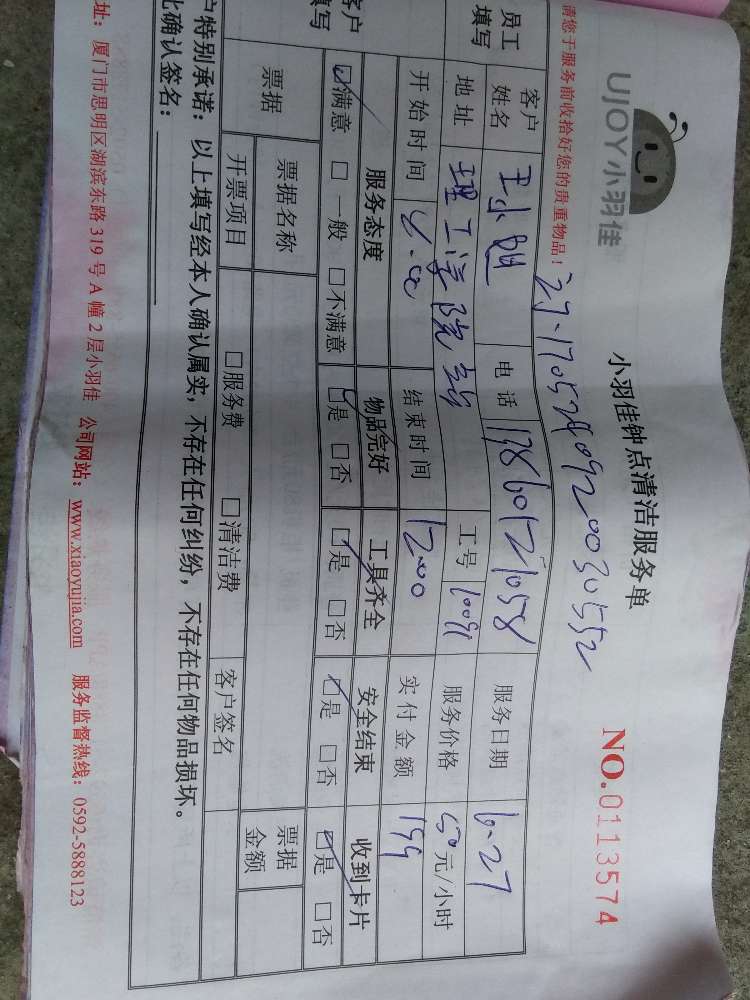 UJOY小羽佳
小羽佳钟点清洁服务单
NO.0113574
请您于服务前收拾好您的贵重物品!
1705240920030552
员工填写
客户姓名 王小姐 电话 13860121058 服务日期 6.27
地址 理工学院 工号 服务价格 50元/小时
开始时间 结束时间 12:00 实付金额 199
客户填写
服务态度 物品完好 工具齐全 安全结束 收到卡片
☑满意 □一般 □不满意 ☑是 □否 ☑是 □否 ☑是 □否 ☑是 □否
票据 票据名称 票据金额
开票项目 □服务费 □清洁费 客户签名
户特别承诺:以上填写经本人确认属实,不存在任何纠纷,不存在任何物品损坏。
比确认签名:
址:厦门市思明区湖滨东路319号A幢2层小羽佳 公司网站:www.xiaoyujia.com 服务监督热线:0592-5888123